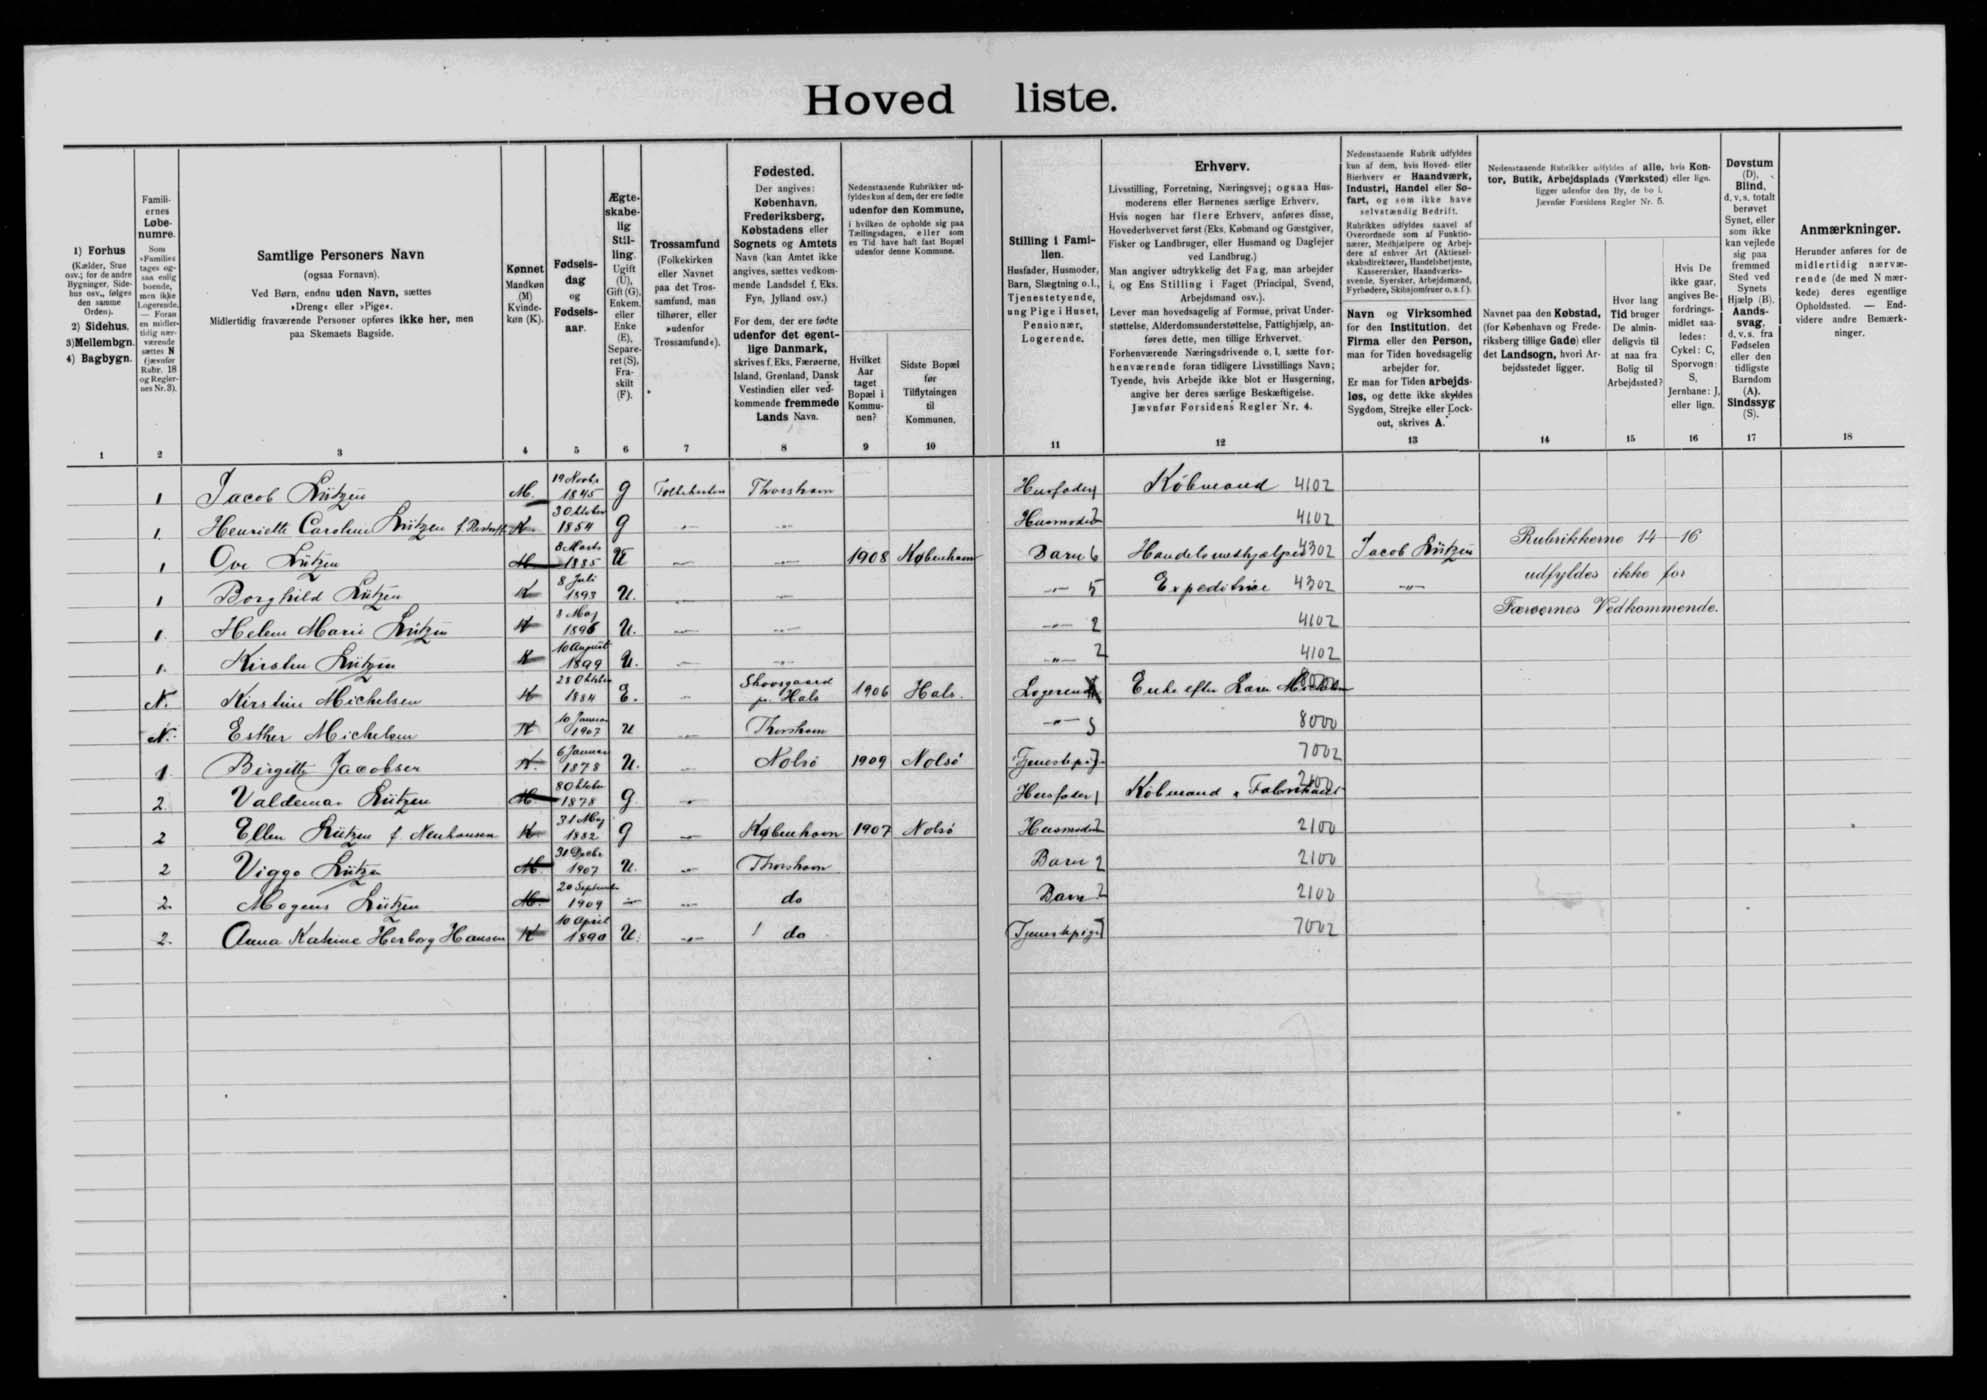 Hoved liste.
1) Forhus
(Kælder, Stue
osv.; for de andre
Bygninger, Side-
hus osv., følges
den samme
Orden).
2) Sidehus.
3) Mellembgn.
4) Bagbygn.
Famili-
ernes
Løbe-
numre.
Som
»Familie«
tages og-
saa enlig
boende,
men ikke
Logerende.
— Foran
en midler-
tidig nær-
værende
sættes N
(jævnfør
Rubr. 18
og Regler-
nes Nr. 3).
Samtlige Personers Navn
(ogsaa Fornavn).
Ved Børn, endnu uden Navn, sættes
»Dreng« eller »Pige«.
Midlertidig fraværende Personer opføres ikke her, men
paa Skemaets Bagside.
Kønnet
Mandkøn
(M)
Kvinde-
køn (K).
Fødsels-
dag
og
Fødsels-
aar.
Ægte-
skabe-
lig
Stil-
ling.
Ugift
(U),
Gift (G),
Enkem.
eller
Enke
(E),
Separe-
ret (S),
Fra-
skilt
(F).
Trossamfund
(Folkekirken
eller Navnet
paa det Tros-
samfund, man
tilhører, eller
»udenfor
Trossamfund«).
Fødested.
Der angives:
København,
Frederiksberg,
Købstadens eller
Sognets og Amtets
Navn (kan Amtet ikke
angives, sættes vedkom-
mende Landsdel f. Eks.
Fyn, Jylland osv.)
For dem, der ere fødte
udenfor det egent-
lige Danmark,
skrives f. Eks. Færøerne,
Island, Grønland, Dansk
Vestindien eller ved-
kommende fremmede
Lands Navn.
Nedenstaaende Rubrikker ud-
fyldes kun af dem, der ere fødte
udenfor den Kommune,
i hvilken de opholde sig paa
Tællingsdagen, eller som
en Tid have haft fast Bopæl
udenfor denne Kommune.
Hvilket
Aar
taget
Bopæl i
Kommu-
nen?
Sidste Bopæl
før
Tilflytningen
til
Kommunen.
Stilling i Fami-
lien.
Husfader, Husmoder,
Barn, Slægtning o. l.,
Tjenestetyende,
ung Pige i Huset,
Pensionær,
Logerende.
Erhverv.
Livsstilling, Forretning, Næringsvej; ogsaa Hus-
moderens eller Børnenes særlige Erhverv.
Hvis nogen har flere Erhverv, anføres disse,
Hovederhvervet først (Eks. Købmand og Gæstgiver,
Fisker og Landbruger, eller Husmand og Daglejer
ved Landbrug.)
Man angiver udtrykkelig det Fag, man arbejder
i, og Ens Stilling i Faget (Principal, Svend,
Arbejdsmand osv.).
Lever man hovedsagelig af Formue, privat Under-
støttelse, Alderdomsunderstøttelse, Fattighjælp, an-
føres dette, men tillige Erhvervet.
Forhenværende Næringsdrivende o. l. sætte for-
henværende foran tidligere Livsstillings Navn;
Tyende, hvis Arbejde ikke blot er Husgerning,
angive her deres særlige Beskæftigelse.
Jævnfør Forsidens Regler Nr. 4.
Nedenstaaende Rubrik udfyldes
kun af dem, hvis Hoved- eller
Bierhverv er Haandværk,
Industri, Handel eller Sø-
fart, og som ikke have
selvstændig Bedrift.
Rubrikken udfyldes saavel af
Overordnede som af Funktio-
nærer, Medhjælpere og Arbej-
dere af enhver Art (Aktiesel-
skabsdirektører, Handelsbetjente,
Kasserersker, Haandværks-
svende, Syersker, Arbejdsmænd,
Fyrbødere, Skibsjomfruer o. s. f.).
Navn og Virksomhed
for den Institution, det
Firma eller den Person,
man for Tiden hovedsagelig
arbejder for.
Er man for Tiden arbejds-
løs, og dette ikke skyldes
Sygdom, Strejke eller Lock-
out, skrives A.
Nedenstaaende Rubrikker udfyldes af alle, hvis Kon-
tor, Butik, Arbejdsplads (Værksted) eller lign.
ligger udenfor den By, de bo i.
Jævnfør Forsidens Regler Nr. 5.
Navnet paa den Købstad,
(for København og Frede-
riksberg tillige Gade) eller
det Landsogn, hvori Ar-
bejdsstedet ligger.
Hvor lang
Tid bruger
De almin-
deligvis til
at naa fra
Bolig til
Arbejdssted?
Hvis De
ikke gaar,
angives Be-
fordrings-
midlet saa-
ledes:
Cykel: C,
Sporvogn:
S,
Jernbane: J,
eller lign.
Døvstum
(D).
Blind,
d. v. s. totalt
berøvet
Synet, eller
som ikke
kan vejlede
sig paa
fremmed
Sted ved
Synets
Hjælp (B).
Aands-
svag,
d. v. s. fra
Fødselen
eller den
tidligste
Barndom
(A).
Sindssyg
(S).
Anmærkninger.
Herunder anføres for de
midlertidig nærvæ-
rende (de med N mær-
kede) deres egentlige
Opholdssted. — End-
videre andre Bemærk-
ninger.
1 2 3 4 5 6 7 8 9 10 11 12 13 14 15 16 17 18
1 Jacob Lützen M. 19 Novbr 1845 G Folkekirken Thorshavn Husfader 1 Købmand 4102
1. Henriette Caroline Lützen f. K 3 Oktober 1854 G " " Husmoder 2 4102
1 Ove Lützen M 8 Marts 1885 U " " 1908 København Barn 6 Handelsmedhjælper 4302 Jacob Lützen Rubrikkerne 14–16
1 Borghild Lützen K 8 Juli 1893 U. " " " 5 Expeditrice 4302 " udfyldes ikke for
1. Helene Marie Lützen K 8 Maj 1896 U. " " " 2 4102 Færøernes Vedkommende.
1. Kirsten Lützen K 10 August 1899 U. " " " 2 4102
N. Kirstine Michelsen K 28 Oktober 1884 E. " Skovsgaard pr. Hals 1906 Hals. Logerende Enke efter Michelsen 8000
N. Esther Michelsen K 10 Januar 1907 U " Thorshavn " 5 8000
1. Birgitte Jacobsen K. 6 Januar 1878 U. " Nolsö 1909 Nolsö Tjenestepige 7 7002
2. Valdemar Lützen M. 8 Oktober 1878 G. " Husfader 1 Købmand & Fabrikant 2100
2 Ellen Lützen f. Neuhausen K 31 Maj 1882 G " København 1907 Nolsö Husmoder 2 2100
2 Viggo Lützen M. 31 Decbr 1907 U. " Thorshavn Barn 2 2100
2. Mogens Lützen M. 20 September 1909 " " do Barn 2 2100
2. Anna Katrine Herborg Hansen K 10 April 1890 U. " do Tjenestepige 7 7002